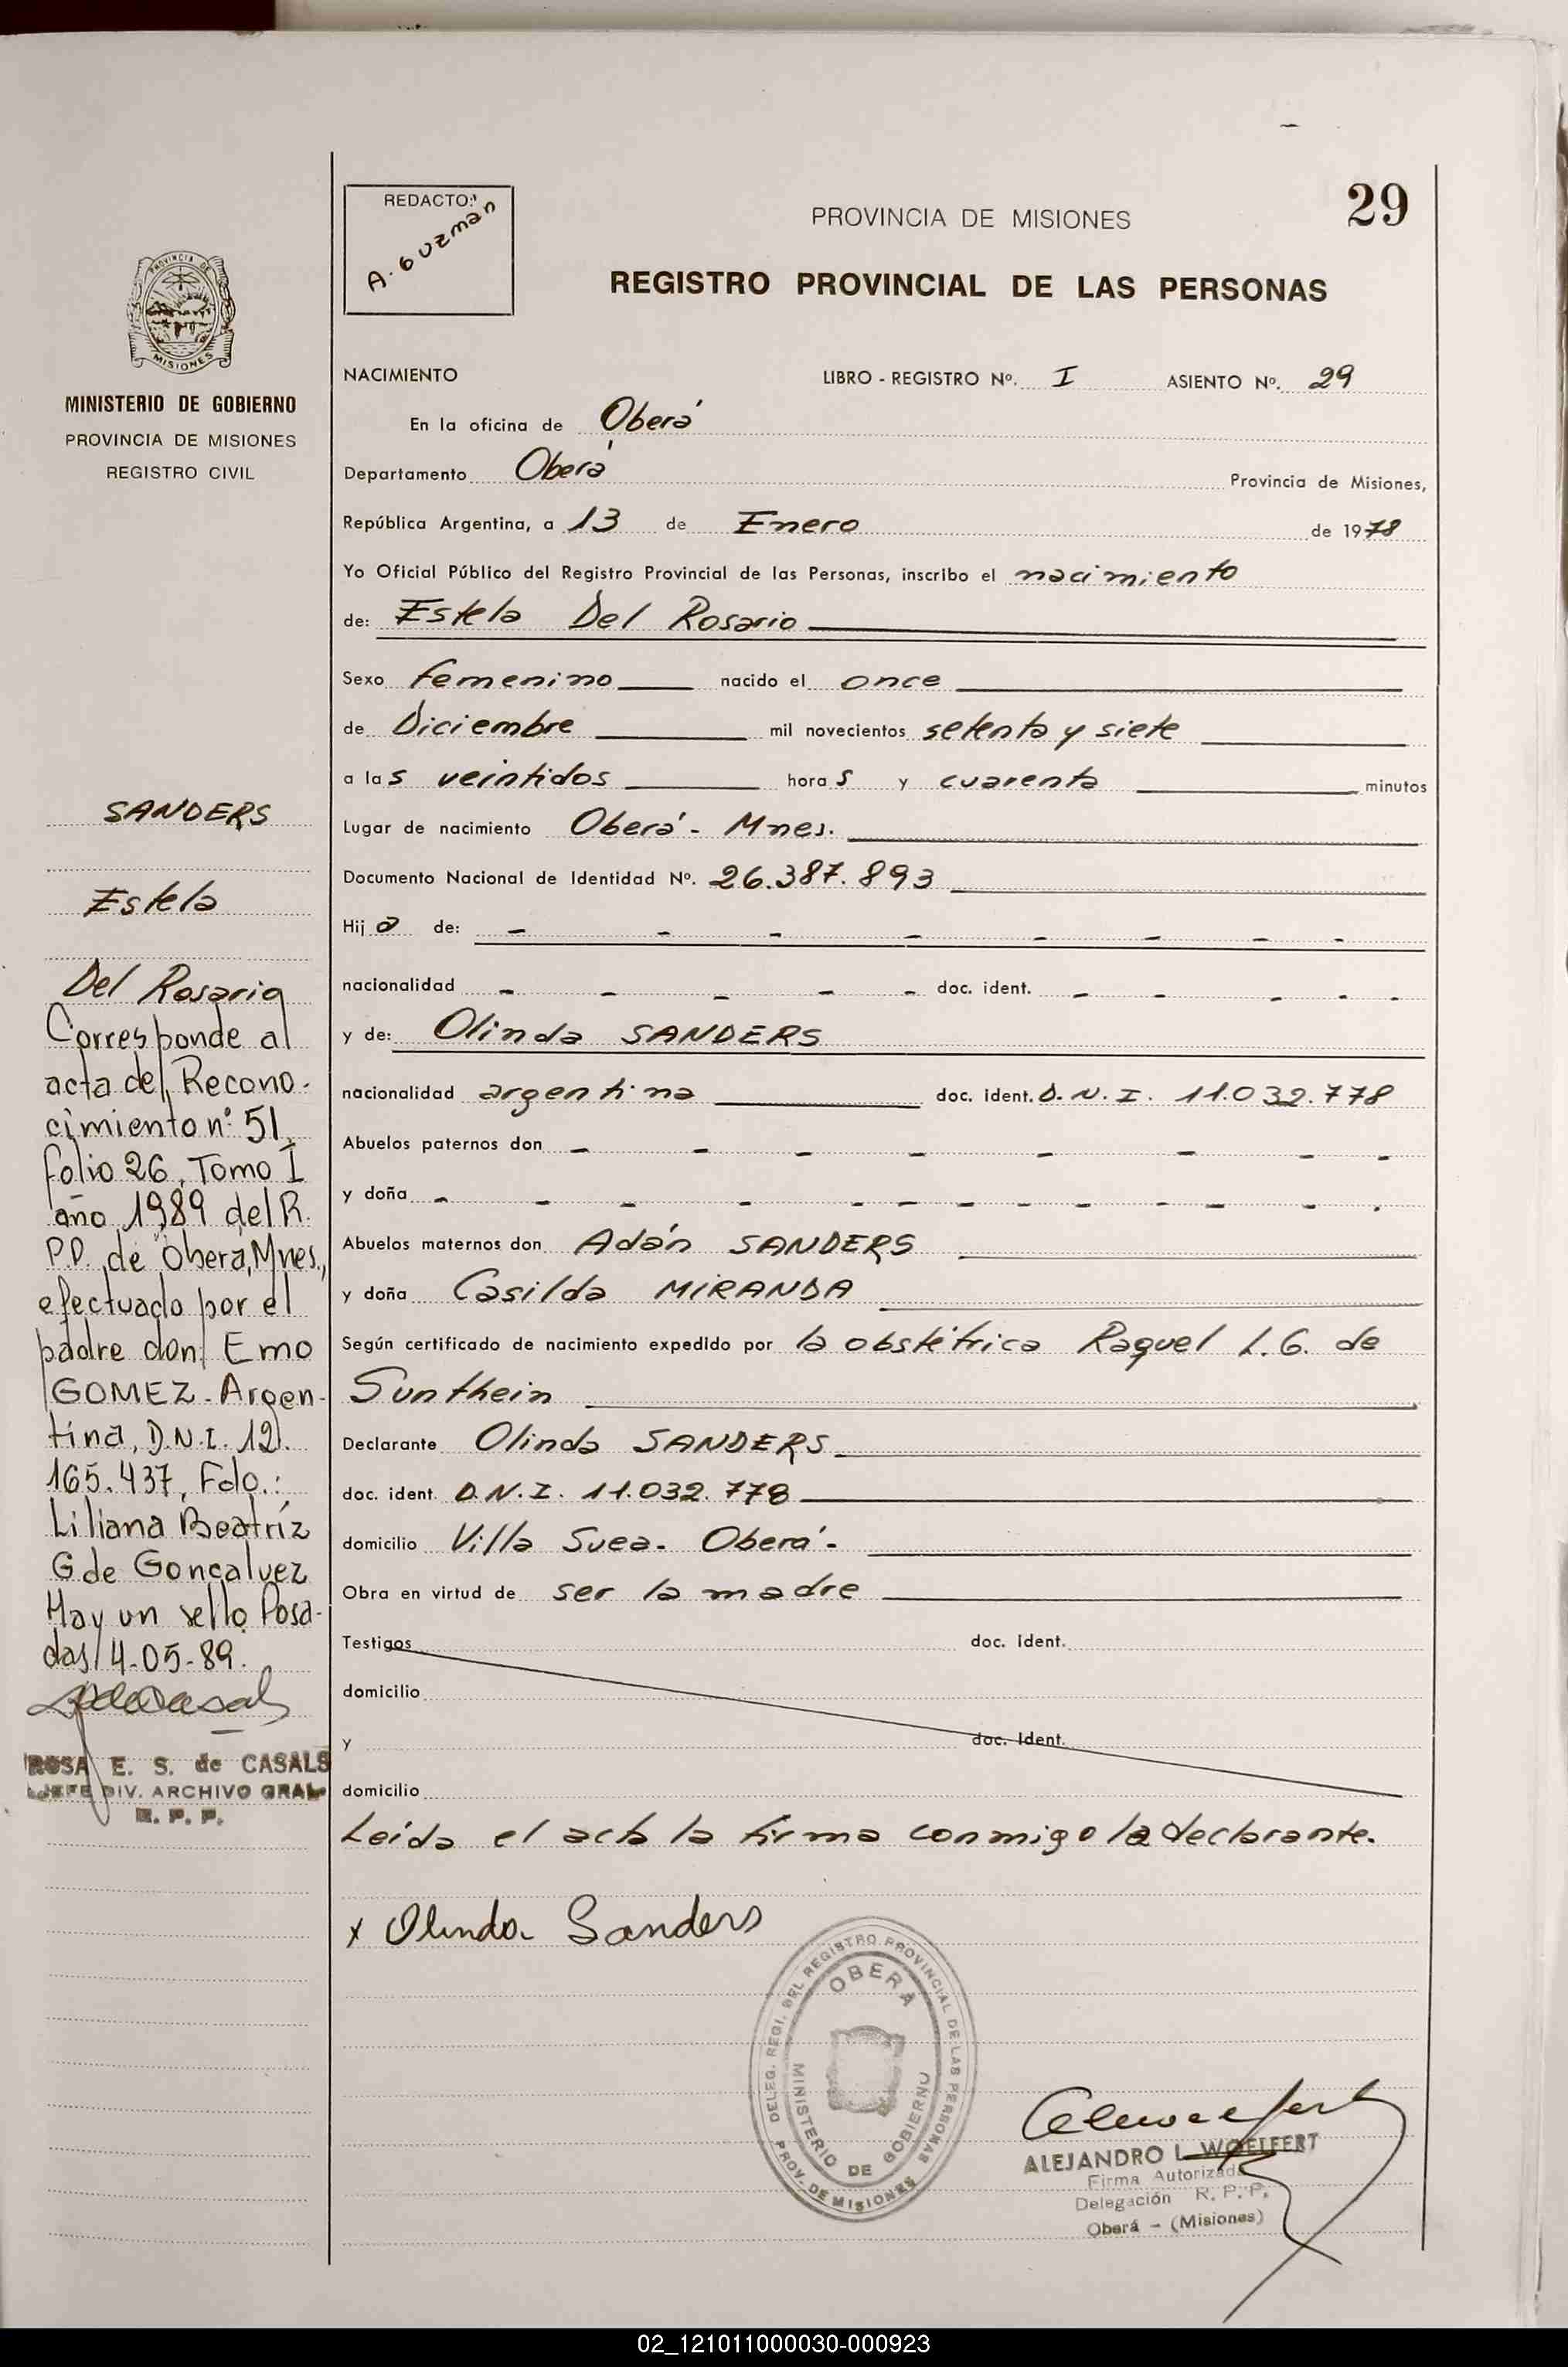 REDACTO:
A. Guzman
PROVINCIA DE MISIONES
29
REGISTRO PROVINCIAL DE LAS PERSONAS
PROVINCIA DE
MISIONES
MINISTERIO DE GOBIERNO
PROVINCIA DE MISIONES
REGISTRO CIVIL
NACIMIENTO LIBRO - REGISTRO Nº. I ASIENTO Nº. 29
En la oficina de Oberá
Departamento Oberá Provincia de Misiones,
República Argentina, a 13 de Enero de 1978
Yo Oficial Público del Registro Provincial de las Personas, inscribo el nacimiento
de: Estela Del Rosario
Sexo femenino nacido el once
de Diciembre mil novecientos setenta y siete
a las veintidos horas y cuarenta minutos
Lugar de nacimiento Oberá - Mnes.
Documento Nacional de Identidad Nº. 26.387.893
Hija de: - - - - - - - -
nacionalidad - - - - - doc. ident. - - - - -
y de: Olinda SANDERS
nacionalidad argentina doc. ident. D.N.I. 11.032.778
Abuelos paternos don - - - - - - - -
y doña - - - - - - - - - - -
Abuelos maternos don Adán SANDERS
y doña Casilda MIRANDA
Según certificado de nacimiento expedido por la obstétrica Raquel L.G. de
Sunthein
Declarante Olinda SANDERS
doc. ident. D.N.I. 11.032.778
domicilio Villa Svea - Oberá -
Obra en virtud de ser la madre
Testigos doc. ident.
domicilio
y doc. ident.
domicilio
Leída el acta la firma conmigo la declarante.
x Olinda Sanders
SANDERS
Estela
Del Rosario
Corresponde al
acta de Recono-
cimiento nº 51,
folio 26, Tomo I
año 1989 del R.
P.P. de Oberá, Mnes.,
efectuado por el
padre don Emo
GOMEZ - Argen-
tina, D.N.I. 12.
165.437, Fdo.:
Liliana Beatríz
G de Gonçalvez
Hay un sello. Posa-
das, 4-05-89.
ROSA E. S. de CASALS
JEFE DIV. ARCHIVO GRAL.
R. P. P.
DELEG. REGI. DEL REGISTRO PROVINCIAL DE LAS PERSONAS
OBERA
MINISTERIO DE GOBIERNO
PROV. DE MISIONES
ALEJANDRO L. WOELFERT
Firma Autorizada
Delegación R. P. P.
Oberá - (Misiones)
02_121011000030-000923